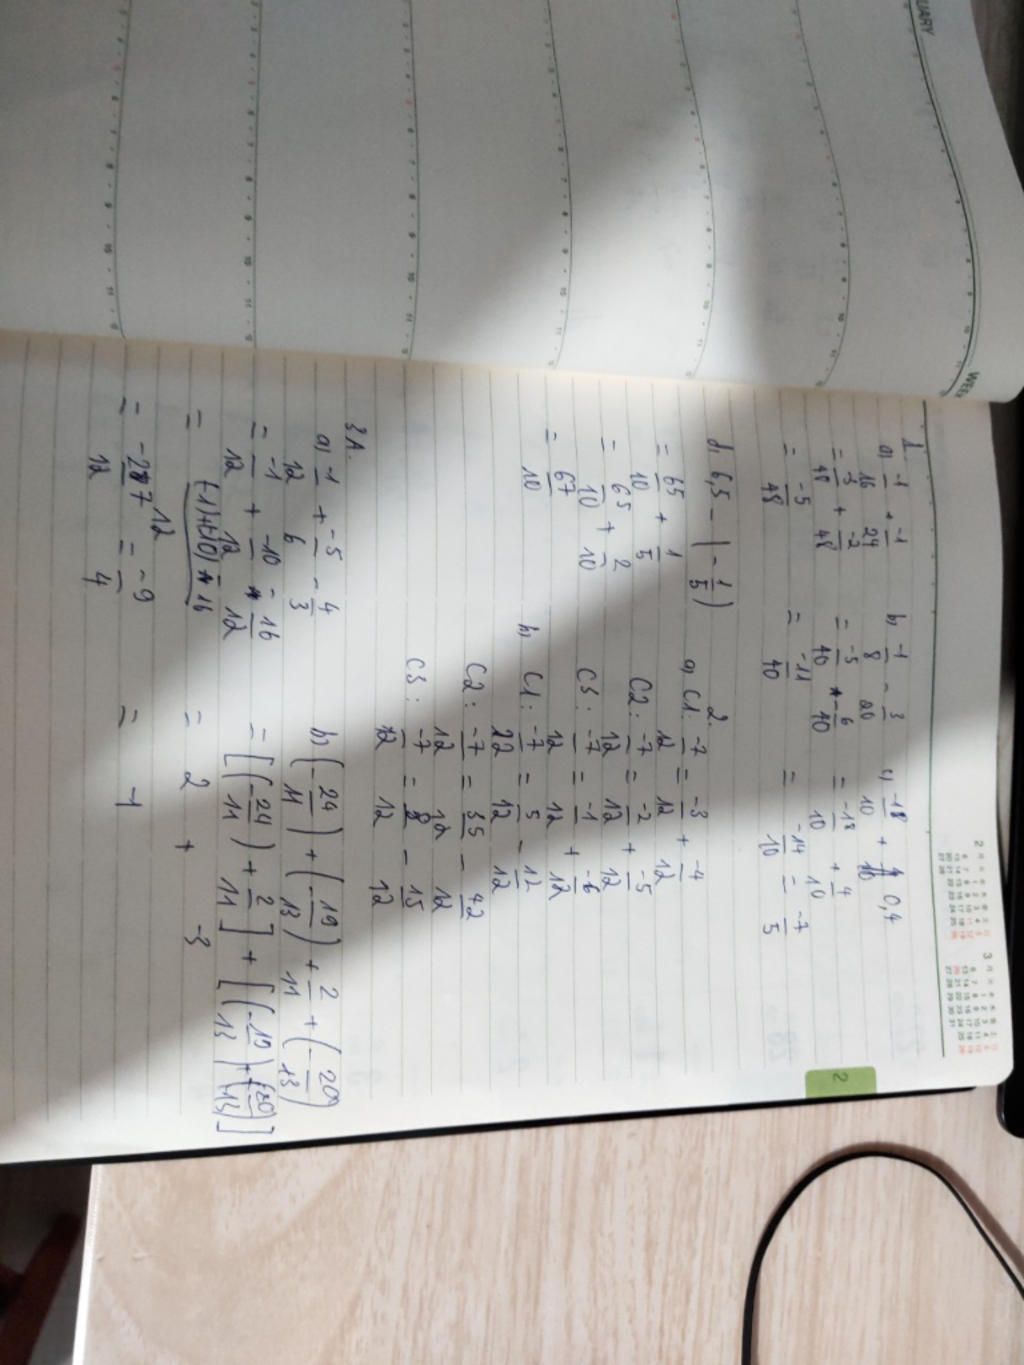 1.
a, -1/16 + -1/24
= -3/48 + -2/48
= -5/48
b, -1/8 - 3/20
= -5/40 - 6/40
= -11/40
c, -18/10 + 0,4
= -18/10 + 4/10
= -14/10 = -7/5
d, 6,5 - (-1/5)
= 65/10 + 1/5
= 65/10 + 2/10
= 67/10
2.
a, C1: -7/12 = -3/12 + -4/12
C2: -7/12 = -2/12 + -5/12
C3: -7/12 = -1/12 + -6/12
b, C1: -7/12 = 5/12 - 12/12
C2: -7/12 = 35/12 - 42/12
C3: -7/12 = 8/12 - 15/12
3A.
a, -1/12 + -5/6 - 4/3
= -1/12 + -10/12 - 16/12
= (-1)+(-10)-16/12
= -27/12 = -9/4
b, (-24/11) + (-19/13) + 2/11 + (-20/13)
= [(-24/11) + 2/11] + [(-19/13) + (-20/13)]
= 2 + -3
= -1
2
2月
3月